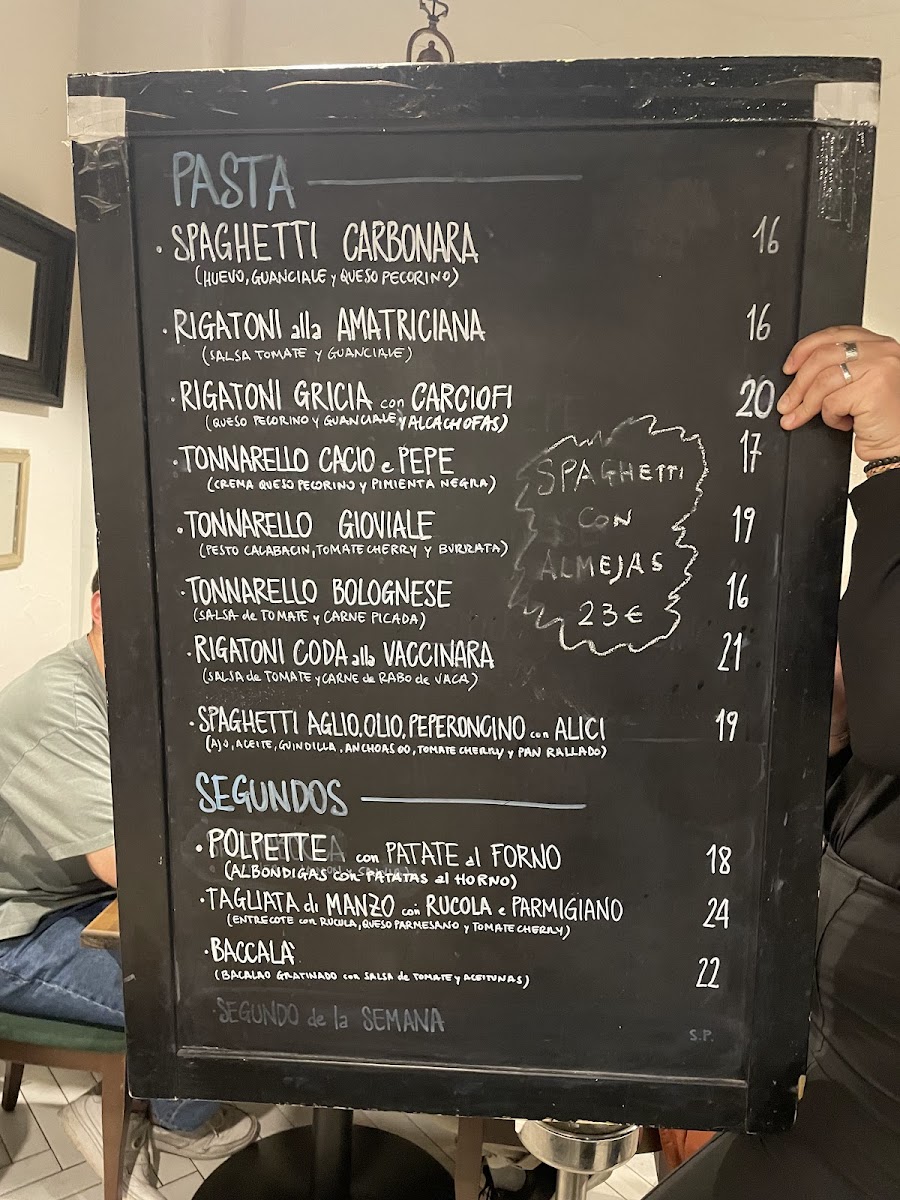 PASTA
· SPAGHETTI CARBONARA 16
(HUEVO, GUANCIALE y QUESO PECORINO)
· RIGATONI alla AMATRICIANA 16
(SALSA TOMATE y GUANCIALE)
· RIGATONI GRICIA con CARCIOFI 20
(QUESO PECORINO y GUANCIALE y ALCACHOFAS)
· TONNARELLO CACIO e PEPE 17
(CREMA QUESO PECORINO y PIMIENTA NEGRA)
· TONNARELLO GIOVIALE 19
(PESTO CALABACIN, TOMATE CHERRY y BURRATA)
· TONNARELLO BOLOGNESE 16
(SALSA de TOMATE y CARNE PICADA)
· RIGATONI CODA alla VACCINARA 21
(SALSA de TOMATE y CARNE de RABO de VACA)
· SPAGHETTI AGLIO, OLIO, PEPERONCINO con ALICI 19
(AJO, ACEITE, GUINDILLA, ANCHOAS OO, TOMATE CHERRY y PAN RALLADO)
SPAGHETTI
CON
ALMEJAS
23€
SEGUNDOS
· POLPETTE con PATATE al FORNO 18
(ALBONDIGAS con PATATAS al HORNO)
· TAGLIATA di MANZO con RUCOLA e PARMIGIANO 24
(ENTRECOTE con RUCULA, QUESO PARMESANO y TOMATE CHERRY)
· BACCALÀ 22
(BACALAO GRATINADO con SALSA de TOMATE y ACEITUNAS)
· SEGUNDO de la SEMANA S.P.